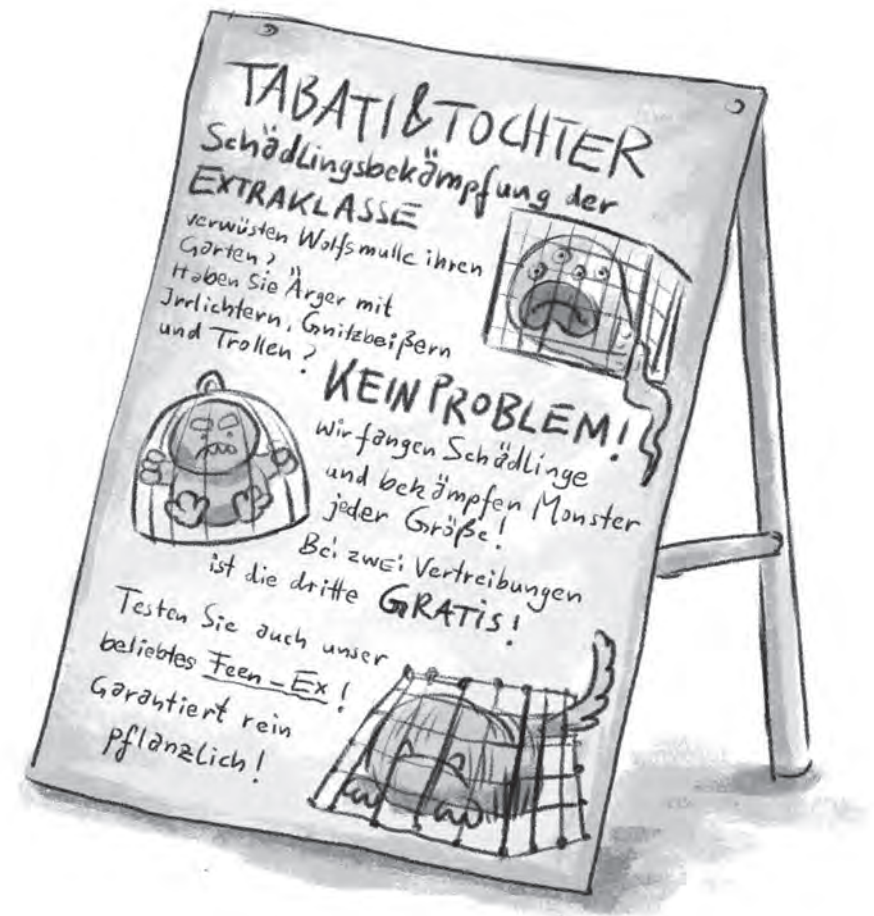 TABATI & TOCHTER
Schädlingsbekämpfung der
EXTRAKLASSE
verwüsten Wolfsmulle ihren
Garten?
Haben Sie Ärger mit
Irrlichtern, Gnitzbeißern
und Trollen?
KEIN PROBLEM!
Wir fangen Schädlinge
und bekämpfen Monster
jeder Größe!
Bei zwei Vertreibungen
ist die dritte GRATIS!
Testen Sie auch unser
beliebtes Feen-Ex!
Garantiert rein
pflanzlich!